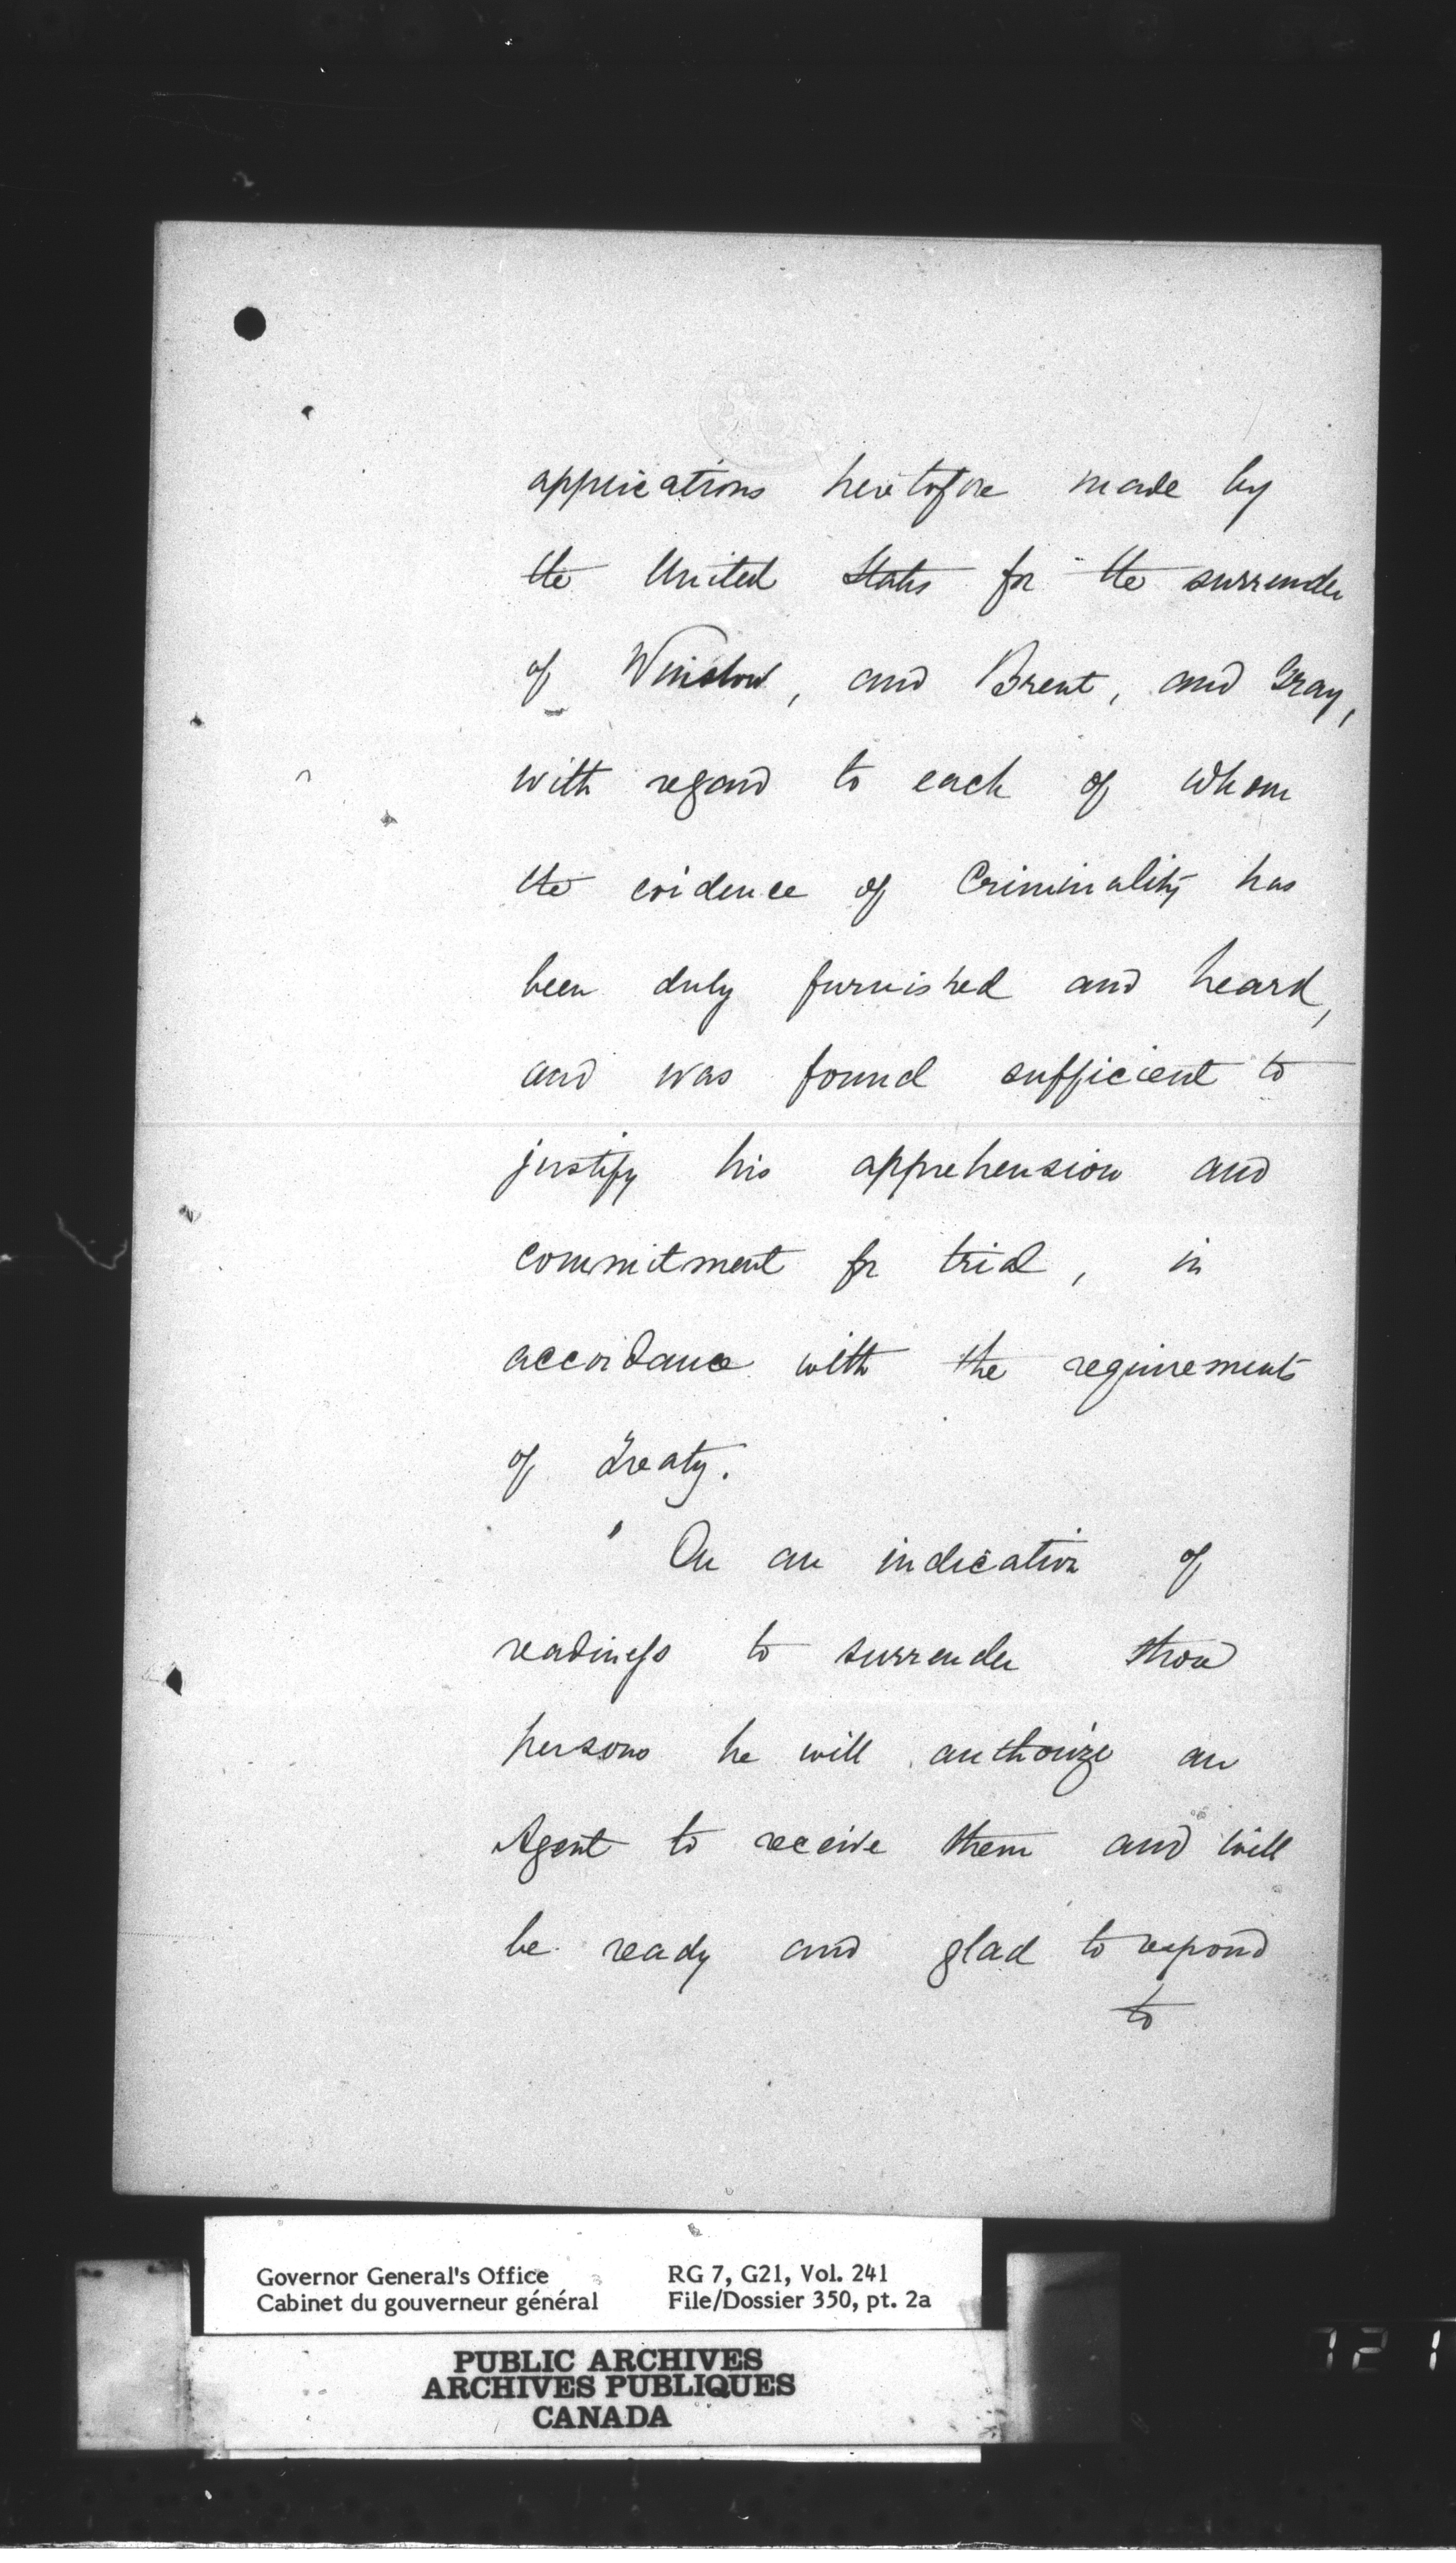 applications heretofore made by
the United States for the surrender
of Winslow, and Brent, and Gray,
with regard to each of whom
the evidence of Criminality has
been duly furnished and heard,
and was found sufficient to
justify his apprehension and
commitment for trial, in
accordance with the requirements
of Treaty.
" On an indication of
readiness to surrender those
persons he will authorize an
Agent to receive them and will
be ready and glad to respond
to
Governor General's Office RG 7, G21, Vol. 241
Cabinet du gouverneur général File/Dossier 350, pt. 2a
PUBLIC ARCHIVES
ARCHIVES PUBLIQUES
CANADA
121